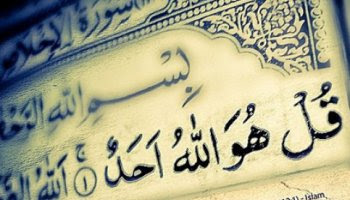 سورة الإخلاص
بِسْمِ اللهِ الرَّحْ
قُلْ هُوَ اللهُ اَحَدٌ ۚ ١ اَللهُ ا
Islam